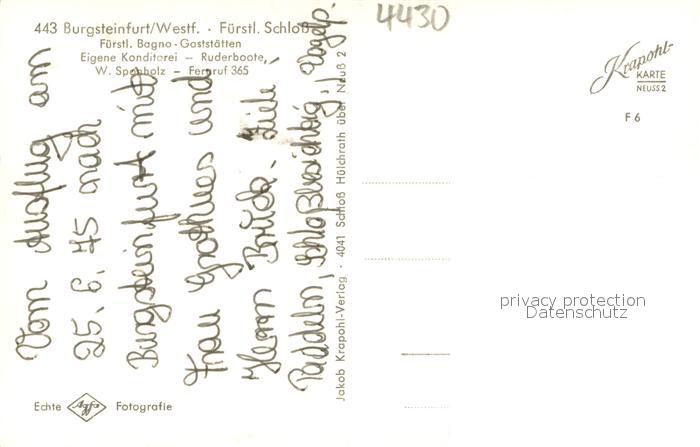 4430
443 Burgsteinfurt/Westf. · Fürstl. Schloß
Fürstl. Bagno-Gaststätten
Eigene Konditorei – Ruderboote,
W. Sponholz – Fernruf 365
Vom Ausflug am
25. 6. 75 nach
Burgsteinfurt mit
Frau Grothues und
Herrn Brück. Ziele:
Paddeln, Schloßbesichtig., Vogelp.
Jakob Krapohl-Verlag · 4041 Schloß Hülchrath über Neuß 2
Krapohl-
KARTE
NEUSS 2
F 6
privacy protection
Datenschutz
Echte Agfa Fotografie